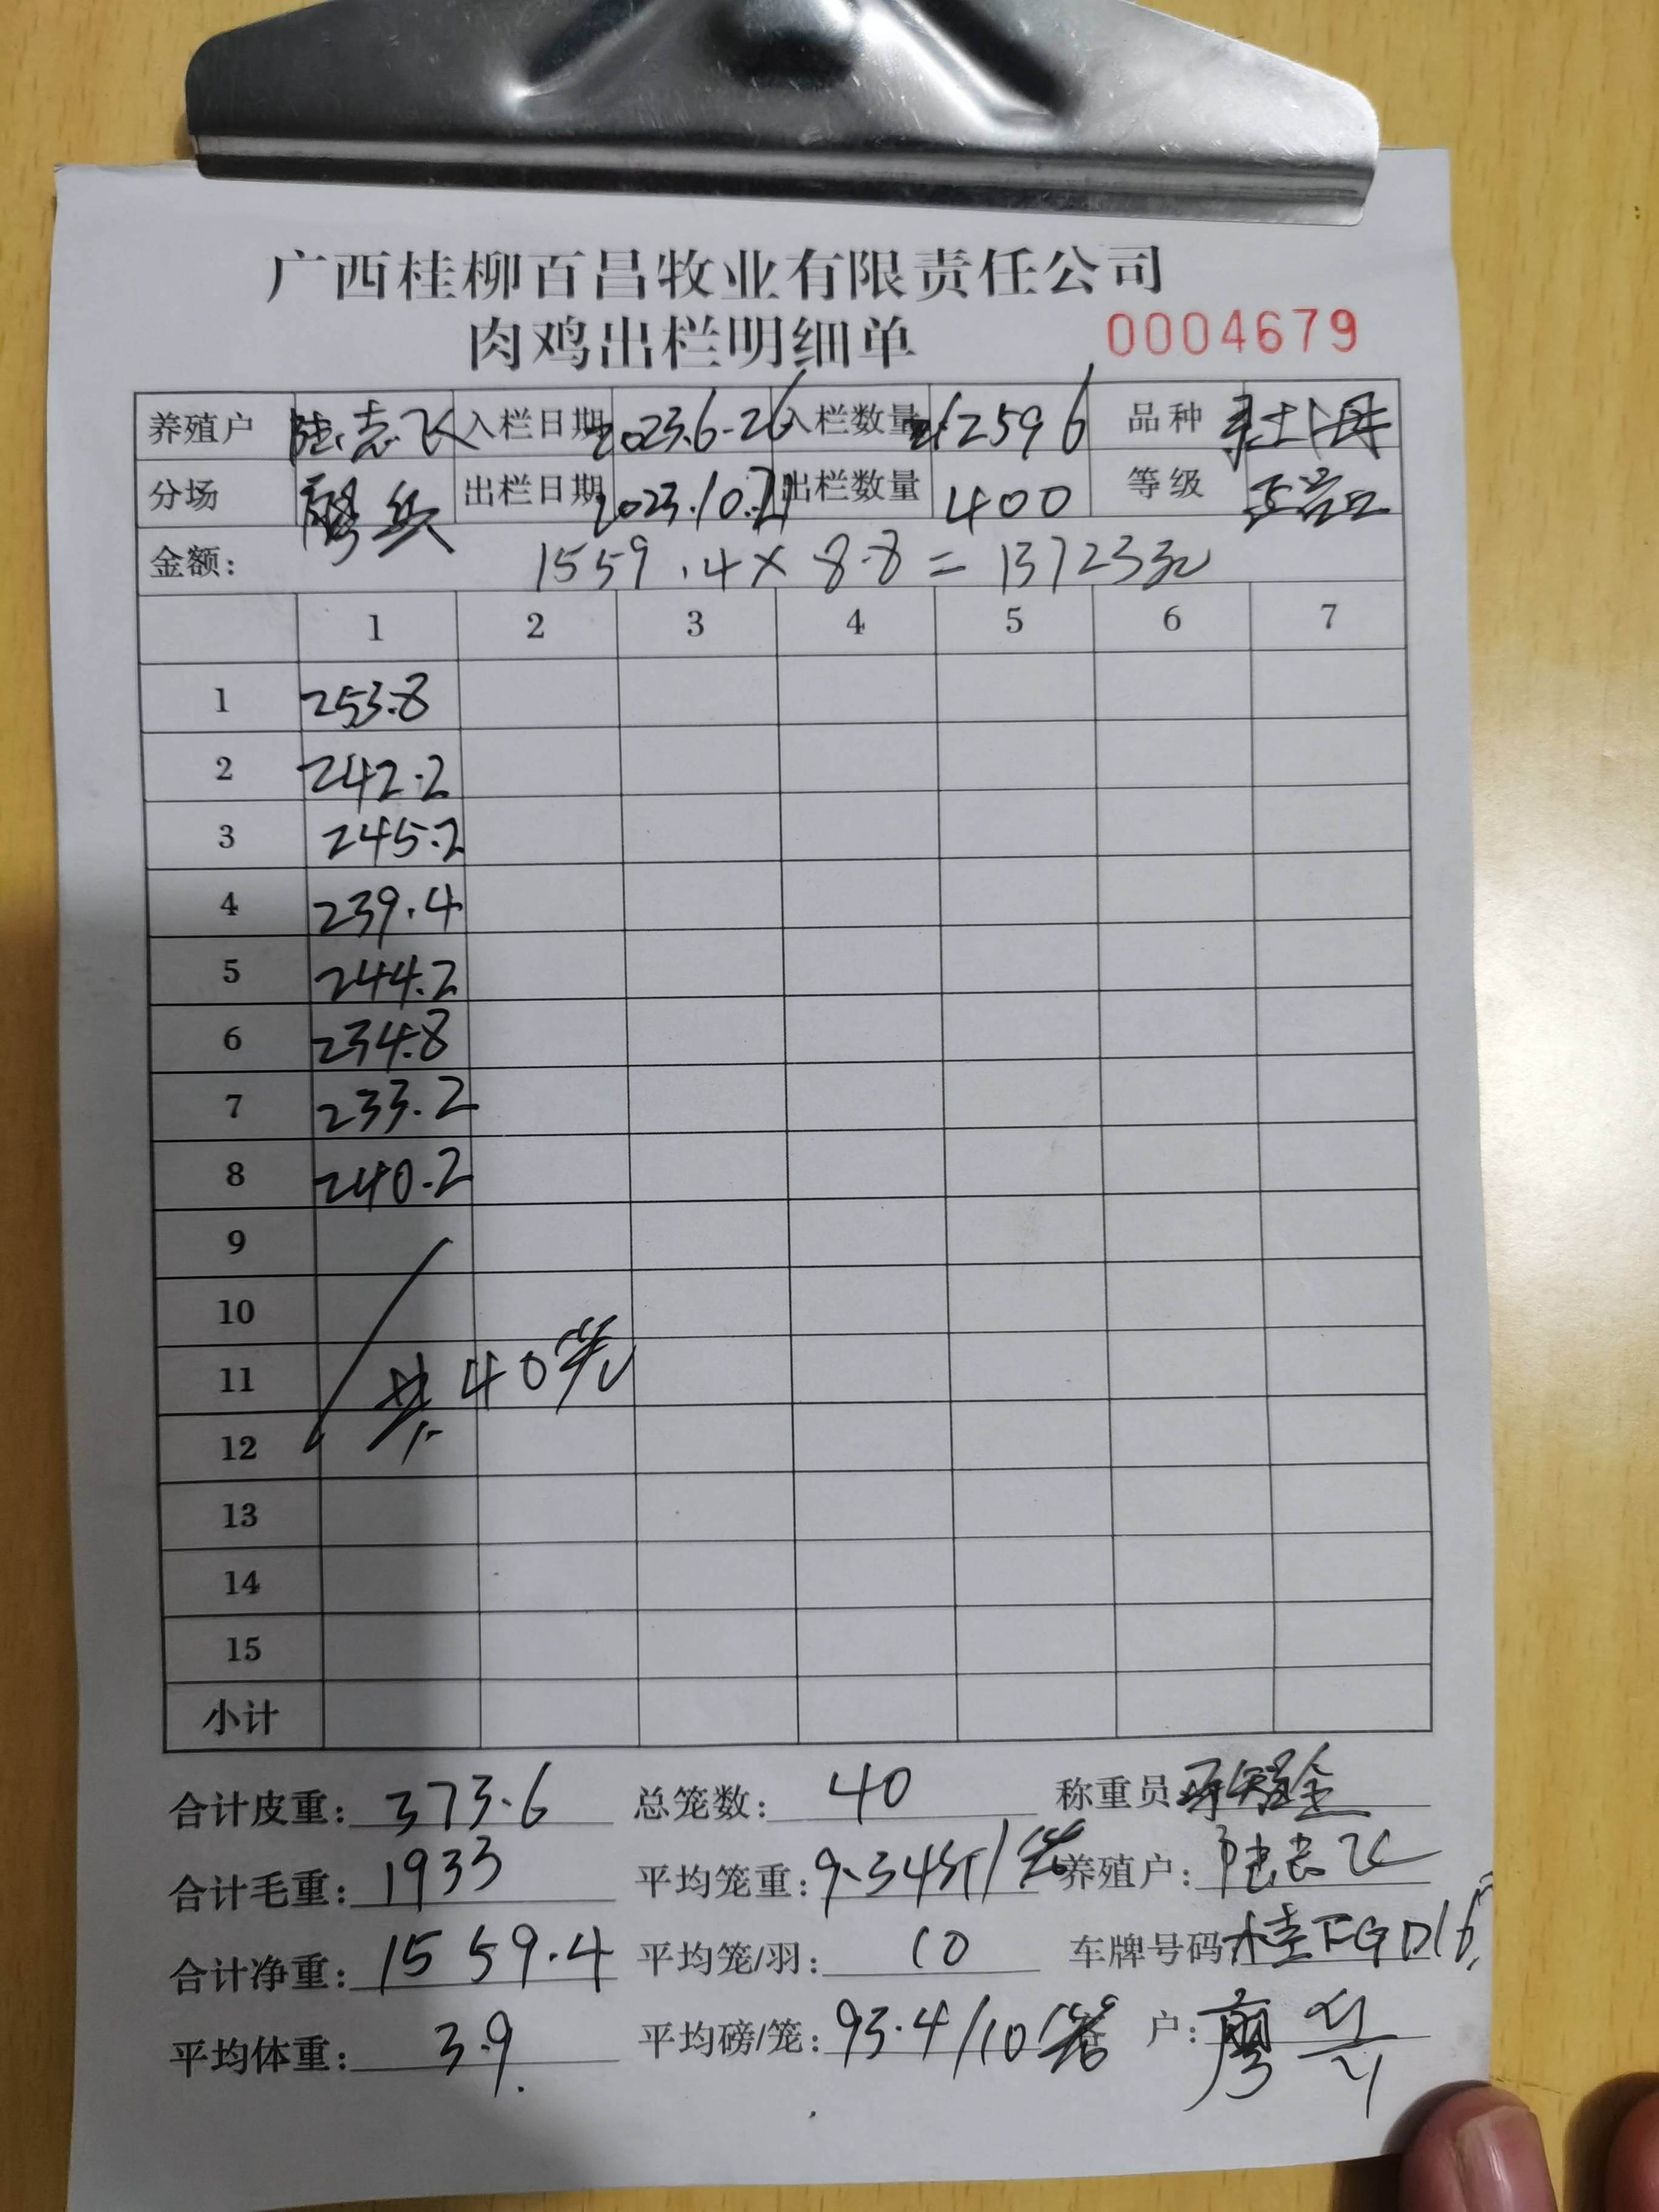 广西桂柳百昌牧业有限责任公司
肉鸡出栏明细单 0004679
养殖户 陆志飞 入栏日期 2023.6.26 入栏数量 12596 品种
分场 廖兵 出栏日期 2023.10.21 出栏数量 400 等级
金额: 1559.4×8.8=13723元
1 2 3 4 5 6 7
1 253.8
2 242.2
3 245.2
4 239.4
5 244.2
6 234.8
7 233.2
8 240.2
9
10
11 共40笼
12
13
14
15
小计
合计皮重: 373.6 总笼数: 40 称重员
合计毛重: 1933 平均笼重: 9.34斤/笼 养殖户: 陆志飞
合计净重: 1559.4 平均笼/羽: 10 车牌号码 桂FGD16
平均体重: 3.9 平均磅/笼: 93.4/10笼 户: 廖兵